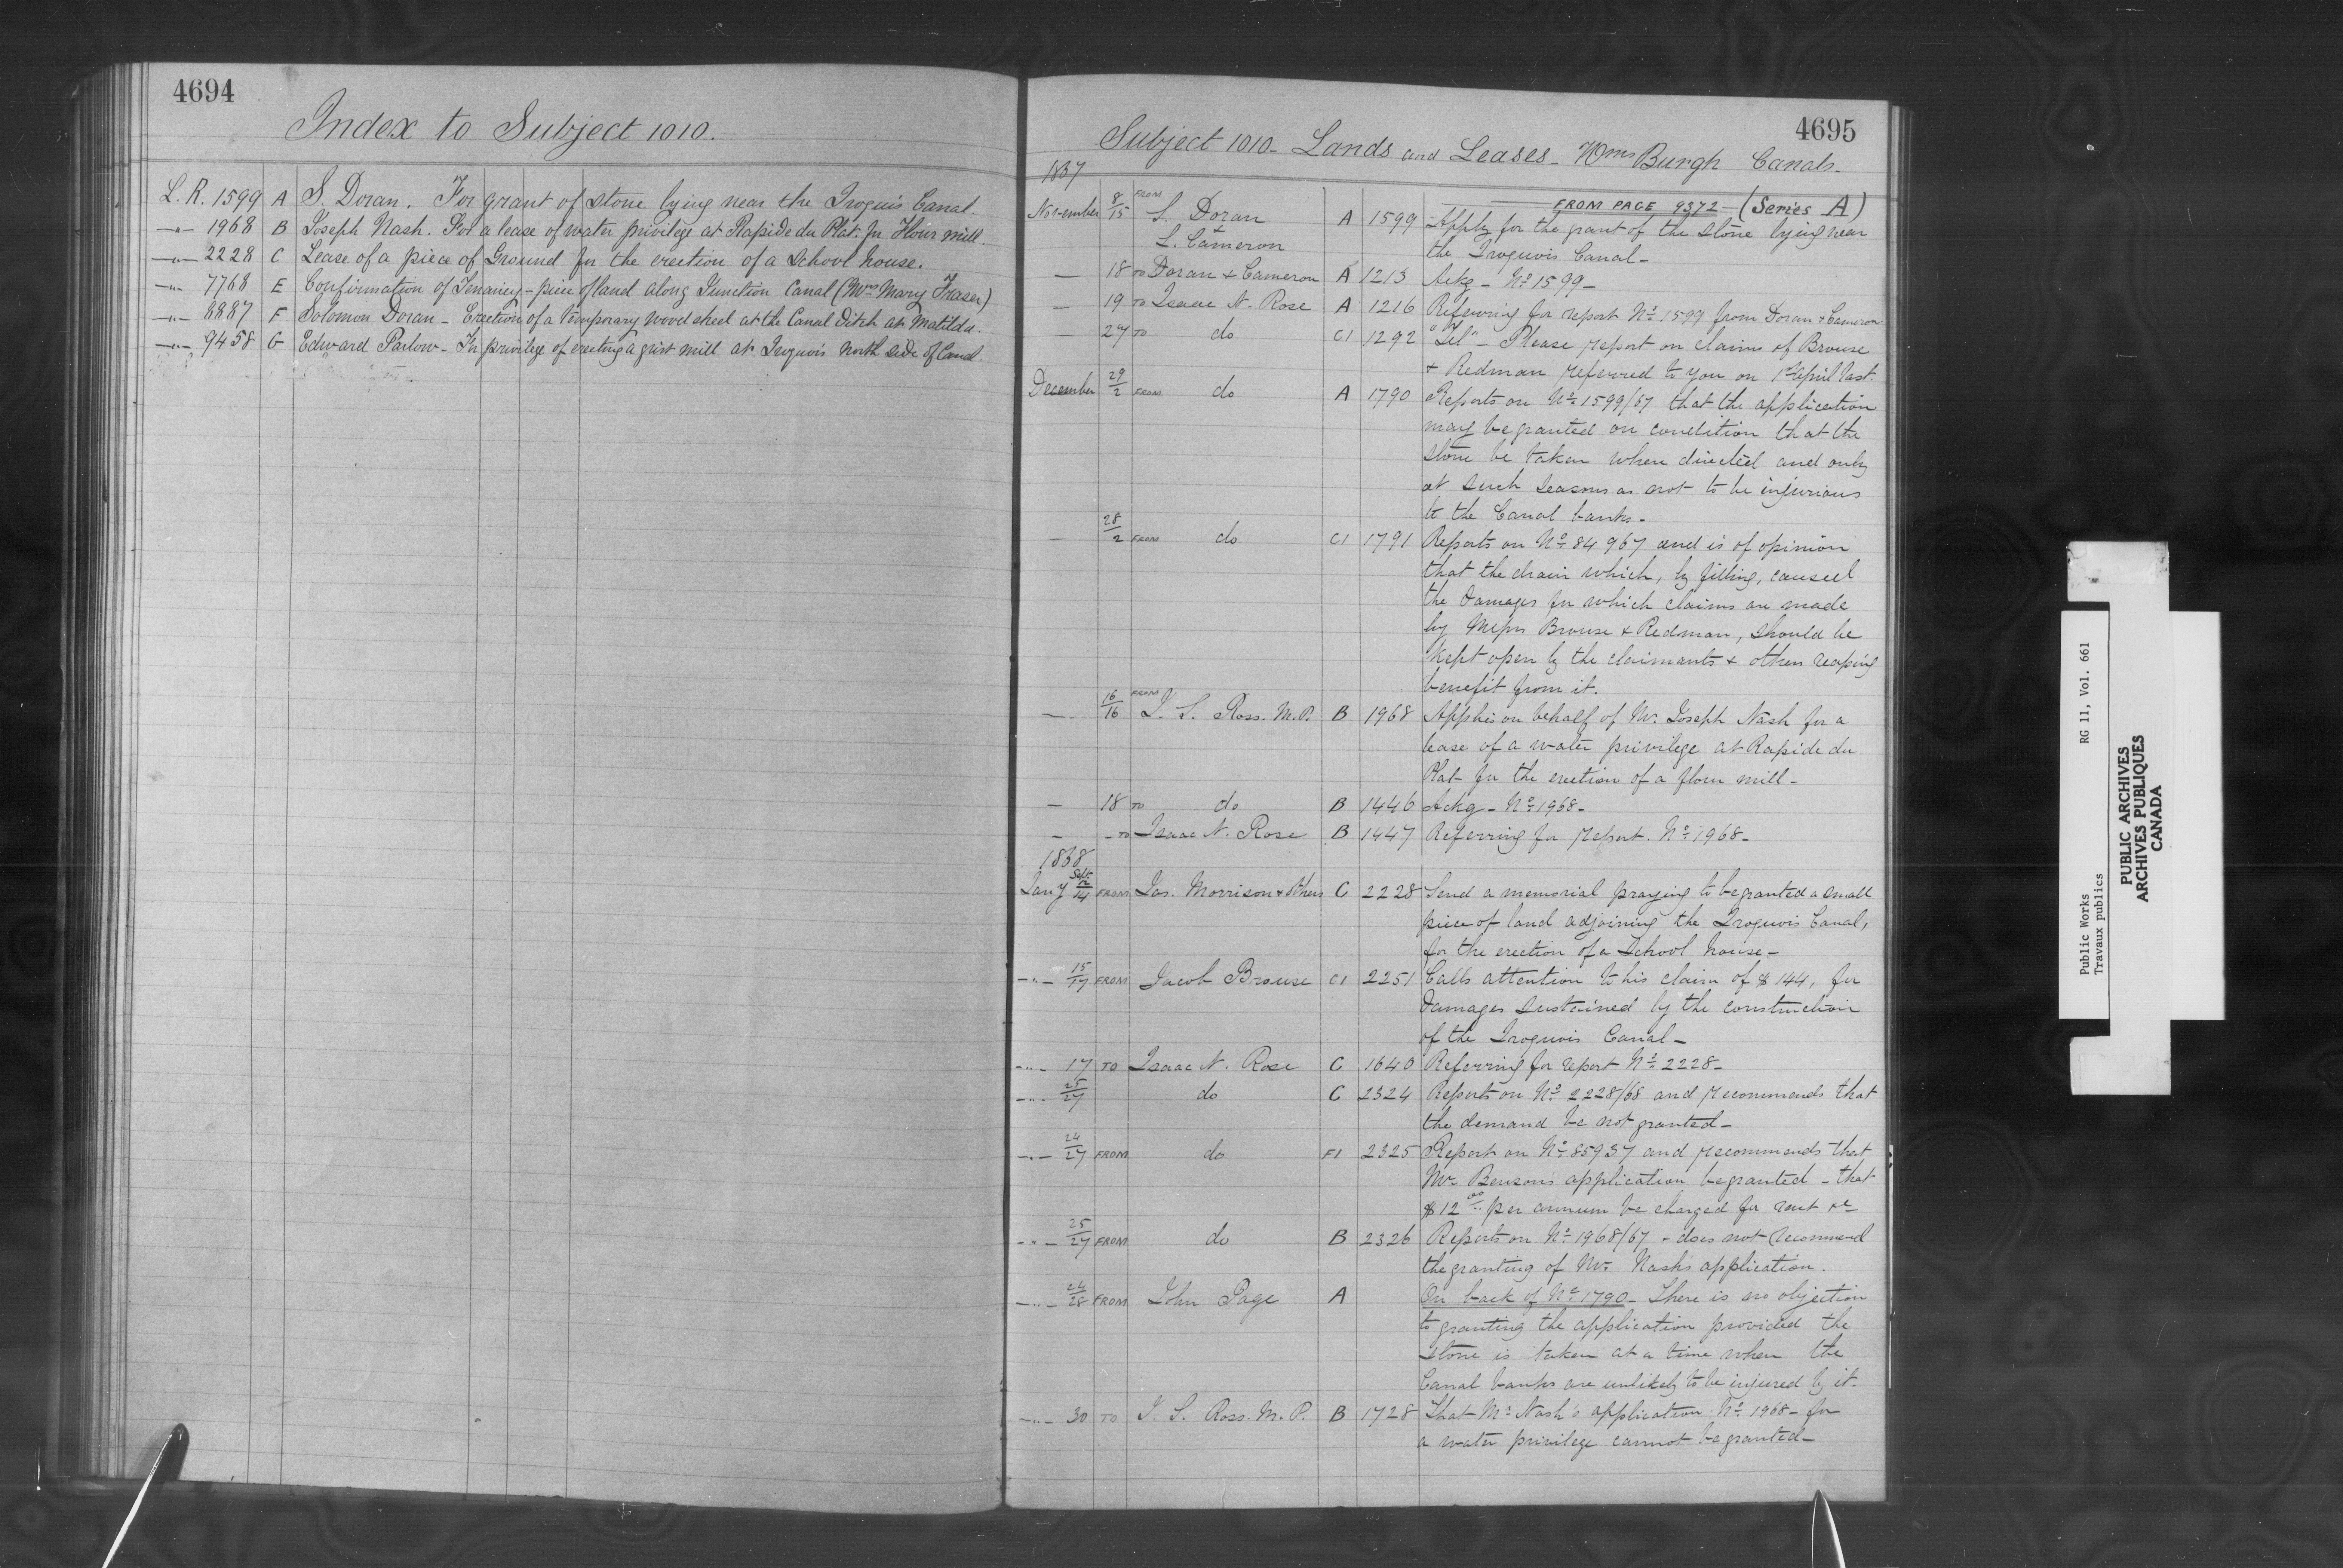 4694
Index to Subject 1010.
L. R. 1599 A S. Doran. For grant of stone lying near the Iroquois Canal.
—"— 1968 B Joseph Nash. For a lease of water privilege at Rapide du Plat. for Flour mill.
—"— 2228 C Lease of a piece of Ground for the erection of a School house.
—"— 7768 E Confirmation of Tenancy - piece of land along Junction Canal (Mrs Mary Fraser)
—"— 8887 F Solomon Doran - Erection of a temporary wood shed at the Canal Ditch at Matilda.
—"— 9458 G Edward Parlow - For privilege of erecting a grist mill at Iroquois North side of Canal.
4695
Subject 1010 - Lands and Leases - Wms Burgh Canals -
1867
FROM PAGE 9372 - (Series A)
November 8/15 FROM S. Doran A 1599 Apply for the grant of the stone lying near
L. Cameron the Iroquois Canal -
— 18 TO Doran & Cameron A 1213 Ackg - No 1599 -
— 19 TO Isaac N. Rose A 1216 Referring for report No 1599 from Doran & Cameron
— 27 TO do C1 1292 "Tel" - Please report on claims of Brouse
& Redman referred to you on 1st April last.
December 29/2 FROM do A 1790 Reports on No 1599/67 that the application
may be granted on condition that the
stone be taken when directed and only
at such seasons as not to be injurious
to the Canal banks -
— 28/2 FROM do C1 1791 Reports on No 84967 and is of opinion
that the drain which, by filling, caused
the damages for which claims are made
by Messrs Brouse & Redman, should be
kept open by the claimants & others reaping
benefit from it.
— 16/16 FROM J. S. Ross. M.P. B 1968 Applies on behalf of Mr. Joseph Nash for a
lease of a water privilege at Rapide du
Plat for the erection of a flour mill -
— 18 TO do B 1446 Ackg - No 1968 -
— - TO Isaac N. Rose B 1447 Referring for report. No 1968 -
1868
Jany Sept./14 FROM Jas. Morrison & others C 2228 Send a memorial praying to be granted a small
piece of land adjoining the Iroquois Canal,
for the erection of a School house -
-"- 15/17 FROM Jacob Brouse C1 2251 Calls attention to his claim of $144, for
damages sustained by the construction
of the Iroquois Canal -
-"- 17 TO Isaac N. Rose C 1640 Referring for report No 2228 -
-"- 25/27 do C 2324 Reports on No 2228/68 and recommends that
the demand be not granted -
-"- 24/27 FROM do F1 2325 Report on No 85937 and recommends that
Mr. Bensons application be granted - that
$12 00 per annum be charged for rent &c
-"- 25/27 FROM do B 2326 Reports on No 1968/67 - does not recommend
the granting of Mr. Nash's application.
-"- 24/28 FROM John Page A On back of No 1790 - There is no objection
to granting the application provided the
stone is taken at a time when the
Canal banks are unlikely to be injured by it.
-"- 30 TO J. S. Ross. M.P. B 1728 That Mr Nash's application No 1968 - for
a water privilege cannot be granted -
Public Works RG 11, Vol. 661
Travaux publics
PUBLIC ARCHIVES
ARCHIVES PUBLIQUES
CANADA